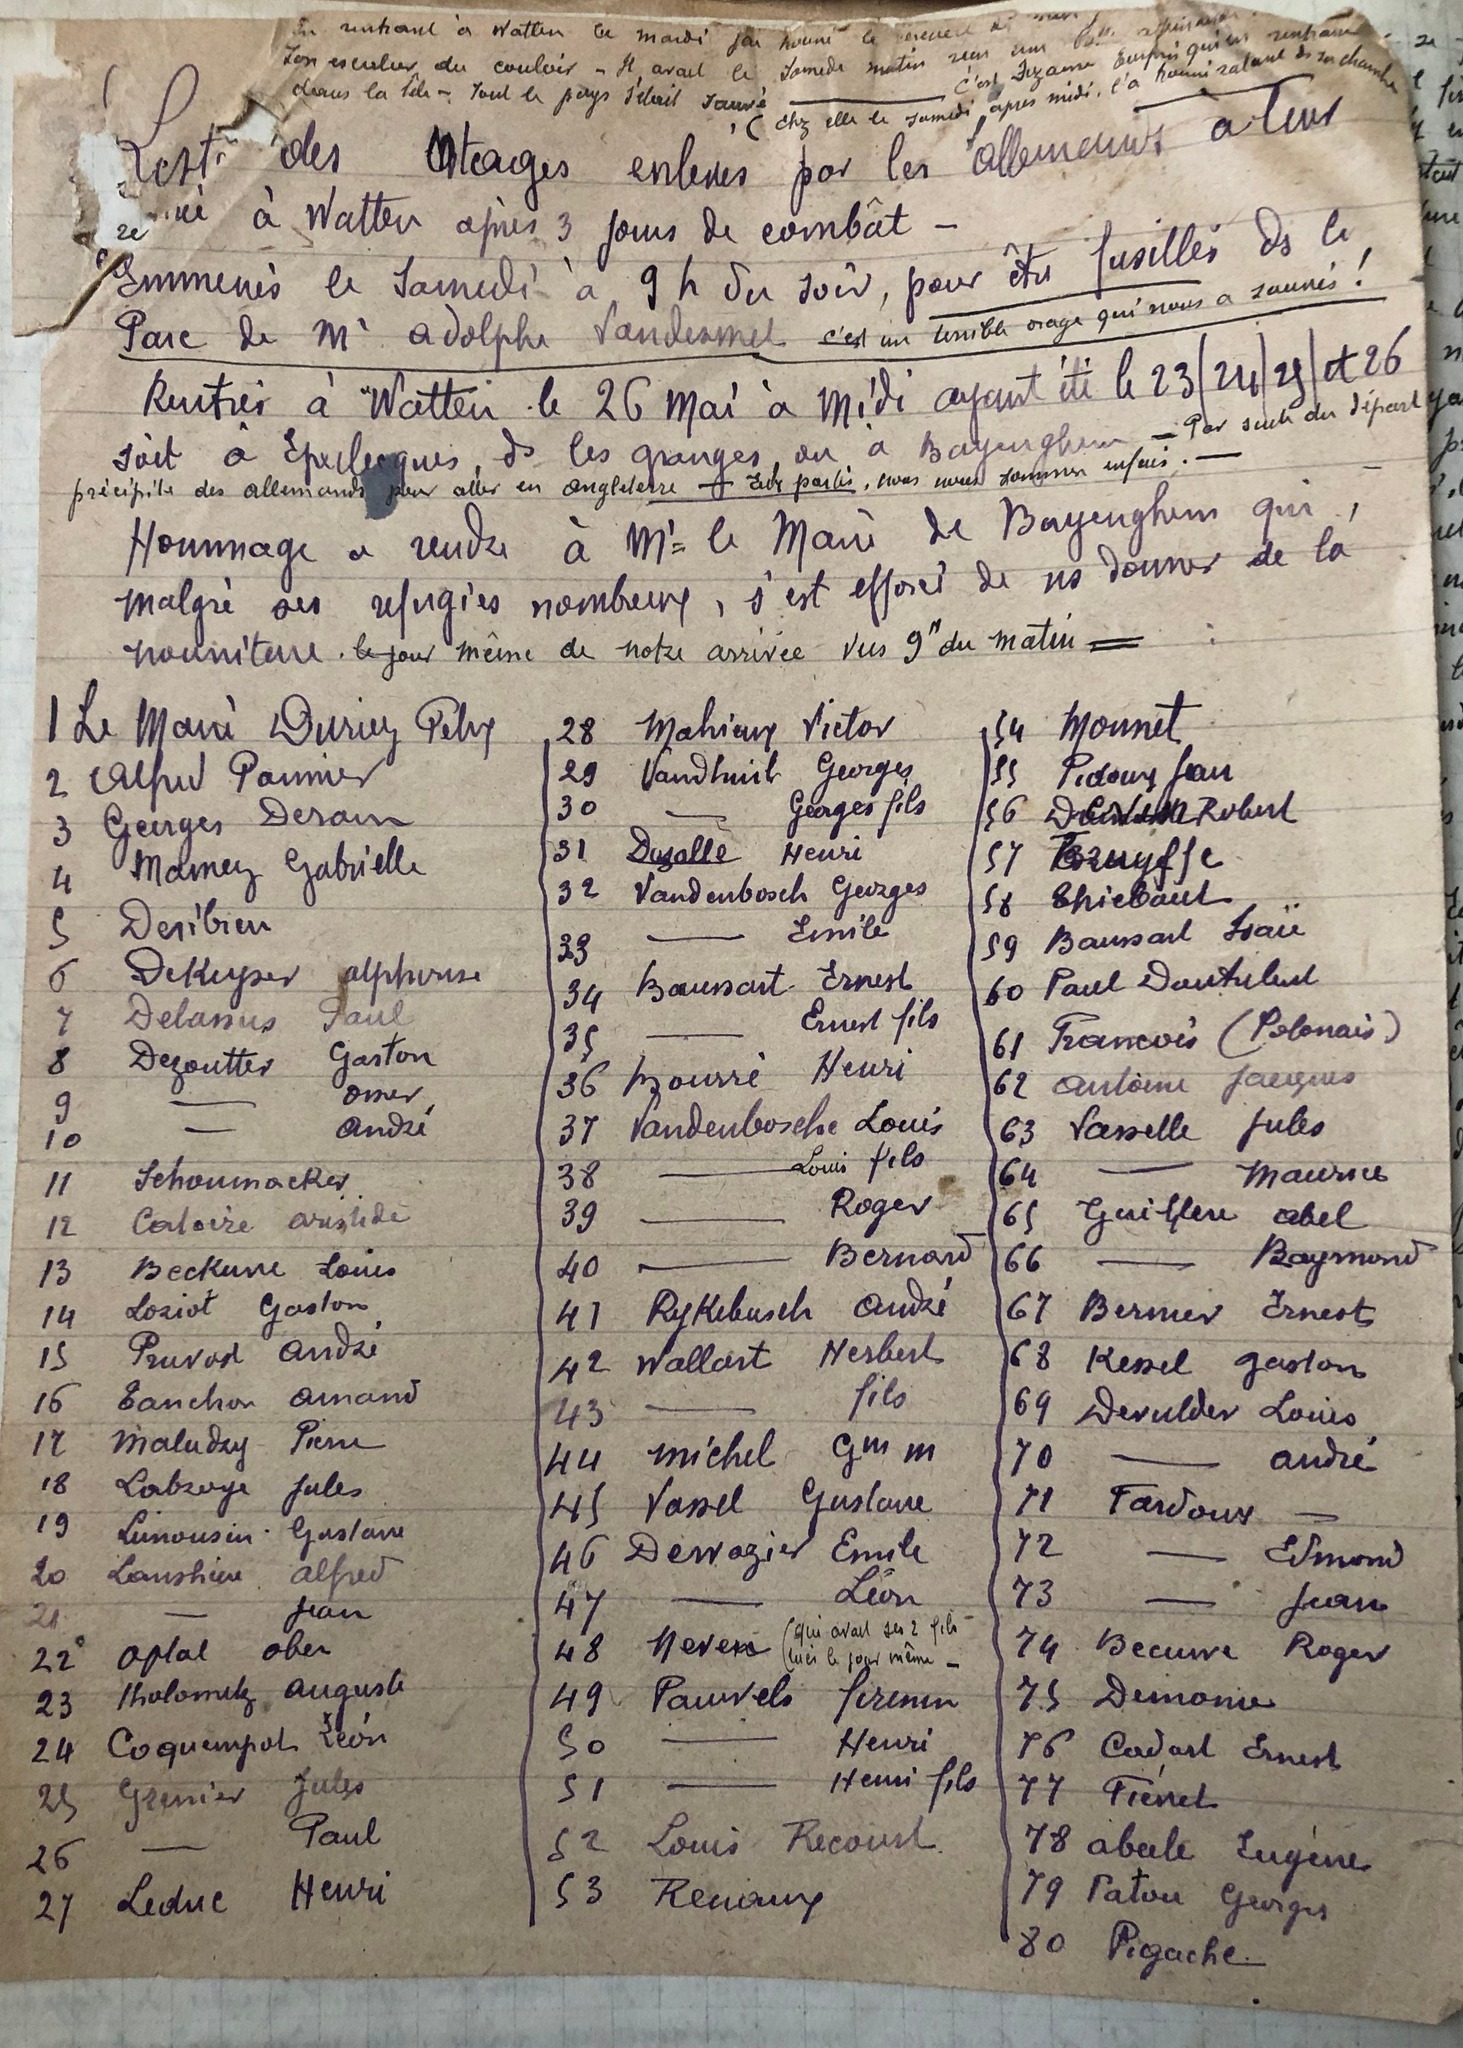 rentrant à Watten le mardi j'ai trouvé le
son escalier du couloir - Il avait le Samedi matin une
dans la tête - Tout le pays s'était sauvé C'est Suzanne qui en rentrant
( chez elle le samedi après midi, l'a ds sa chambre
Liste des Otages enlevés par les allemands à leur
à Watten après 3 jours de combât -
Emmenés le Samedi à 9 h du soir, pour être fusillés ds le
Parc de Mr adolphe Vandesmet c'est un terrible orage qui nous a sauvés !
Rentrés à Watten le 26 Mai à Midi ayant été le 23/24/25/et 26
soit à Eperlecques, ds les granges, ou à Bayenghem - Par suite du départ
précipité des allemands pour aller en angleterre - Eux partis, nous nous sommes enfuis. -
Hommage a rendre à Mr = le Maire de Bayenghem qui,
malgré ses refugiés nombreux, s'est efforcé de ns donner de la
nourriture le jour même de notre arrivée vers 9h du matin =
1 Le Maire Duriez Félix
2 Alfred Paumier
3 Georges Deram
4 Mamez Gabrielle
5 Desibien
6 DeKeyser alphonse
7 Delassus Paul
8 Dezoutter Gaston
9 — omer
10 — andré
11 Schoumacker
12 Catoire aristide
13 Beckune Louis
14 Loriot Gaston
15 Pruvost andré
16 Tanchon amand
17 Maludzy Pierre
18 Labroye Jules
19 Limousin Gustave
20 Lanshiere alfred
21 — Jean
22 optat ober
23 Auguste
24 Coquempot Léon
25 Grenier Jules
26 — Paul
27 Leduc Henri
28 Mahieux Victor
29 Vandhuit Georges
30 — Georges fils
31 Dusallé Henri
32 Vandenbosch Georges
33 — Emile
34 Baussart Ernest
35 — Ernest fils
36 Bourré Henri
37 Vandenbosche Louis
38 — Louis fils
39 — Roger
40 — Bernard
41 Rykebusch andré
42 Wallart Herbert
43 — fils
44 Michel Gm m
45 Vassel Gustave
46 Dervazier Emile
47 — Léon
48 Neven (qui avait ses 2 fils
tués le jour même -
49 Pauwels firmin
50 — Henri
51 — Henri fils
52 Louis Recourt
53 Renaux
54 Monnet
55 Pidoux Jean
56 Robert
57 Bruyffe
58 Thiebaut
59 Baussart Isaïe
60 Paul
61 François (Polonais)
62 antoine Jacques
63 Vasselle Jules
64 — Maurice
65 abel
66 — Raymond
67 Bernier Ernest
68 Kessel gaston
69 Devulder Louis
70 — andré
71 Tardoux —
72 — Edmond
73 — Jean
74 Becuwe Roger
75 Demonie
76 Cadart Ernest
77 Fienet
78 abeele Eugène
79 Patou Georges
80 Pigache